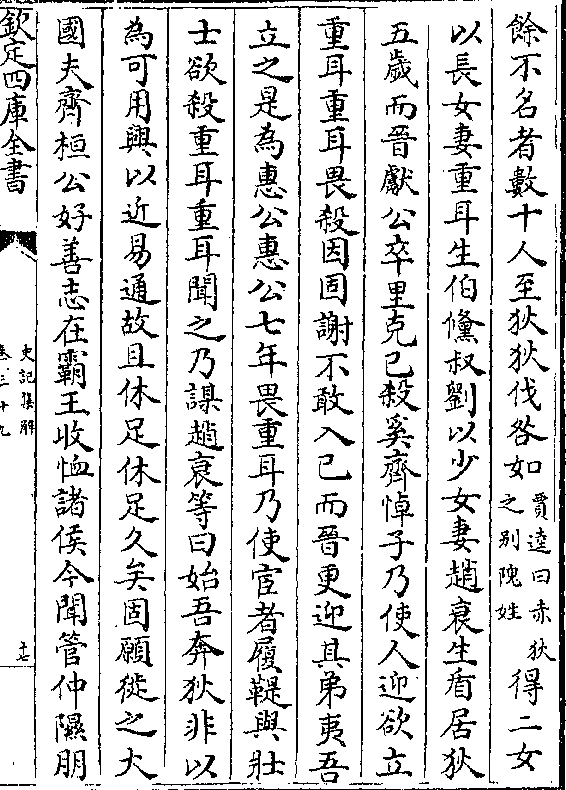 餘不名者數十人至狄狄伐咎如賈逵曰赤狄之别隗姓得二女
以長女妻重耳生伯鯈叔劉以少女妻趙衰生盾居狄
五歲而晉獻公卒里克已殺奚齊悼子乃使人迎欲立
重耳重耳畏殺因固謝不敢入已而晉更迎其弟夷吾
立之是為惠公惠公七年畏重耳乃使宦者履鞮與壯
士欲殺重耳重耳聞之乃謀趙衰等曰始吾奔狄非以
為可用與以近易通故且休足休足久矣固願徙之大
國夫齊桓公好善志在霸王收恤諸侯今聞管仲隰朋
欽定四庫全書
史記集解
卷三十九
十七